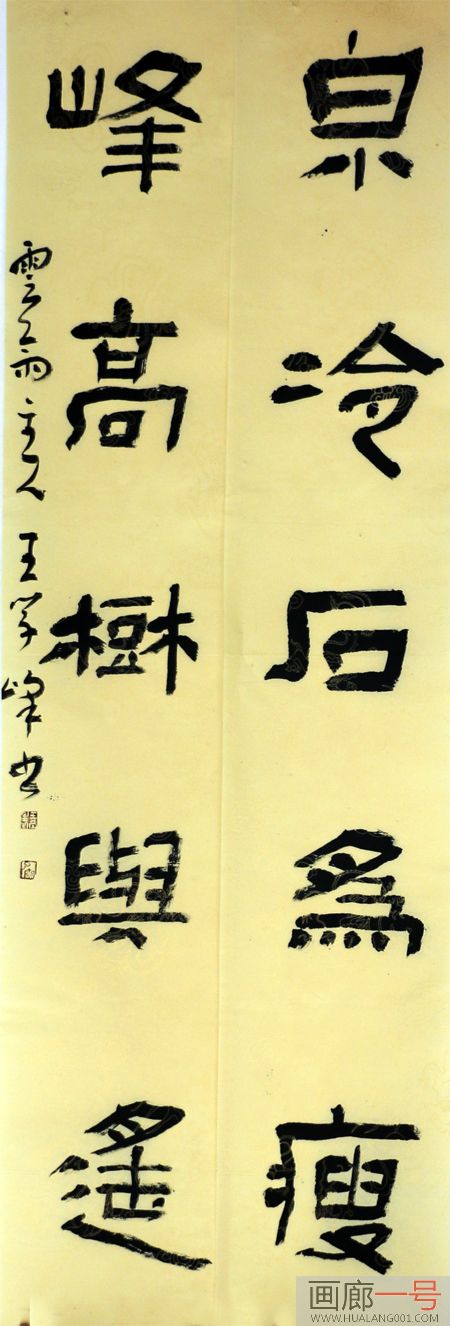 泉冷石爲瘦
峰高樹與遥
王学峰书
画廊一号
WWW.HUALANG001.COM